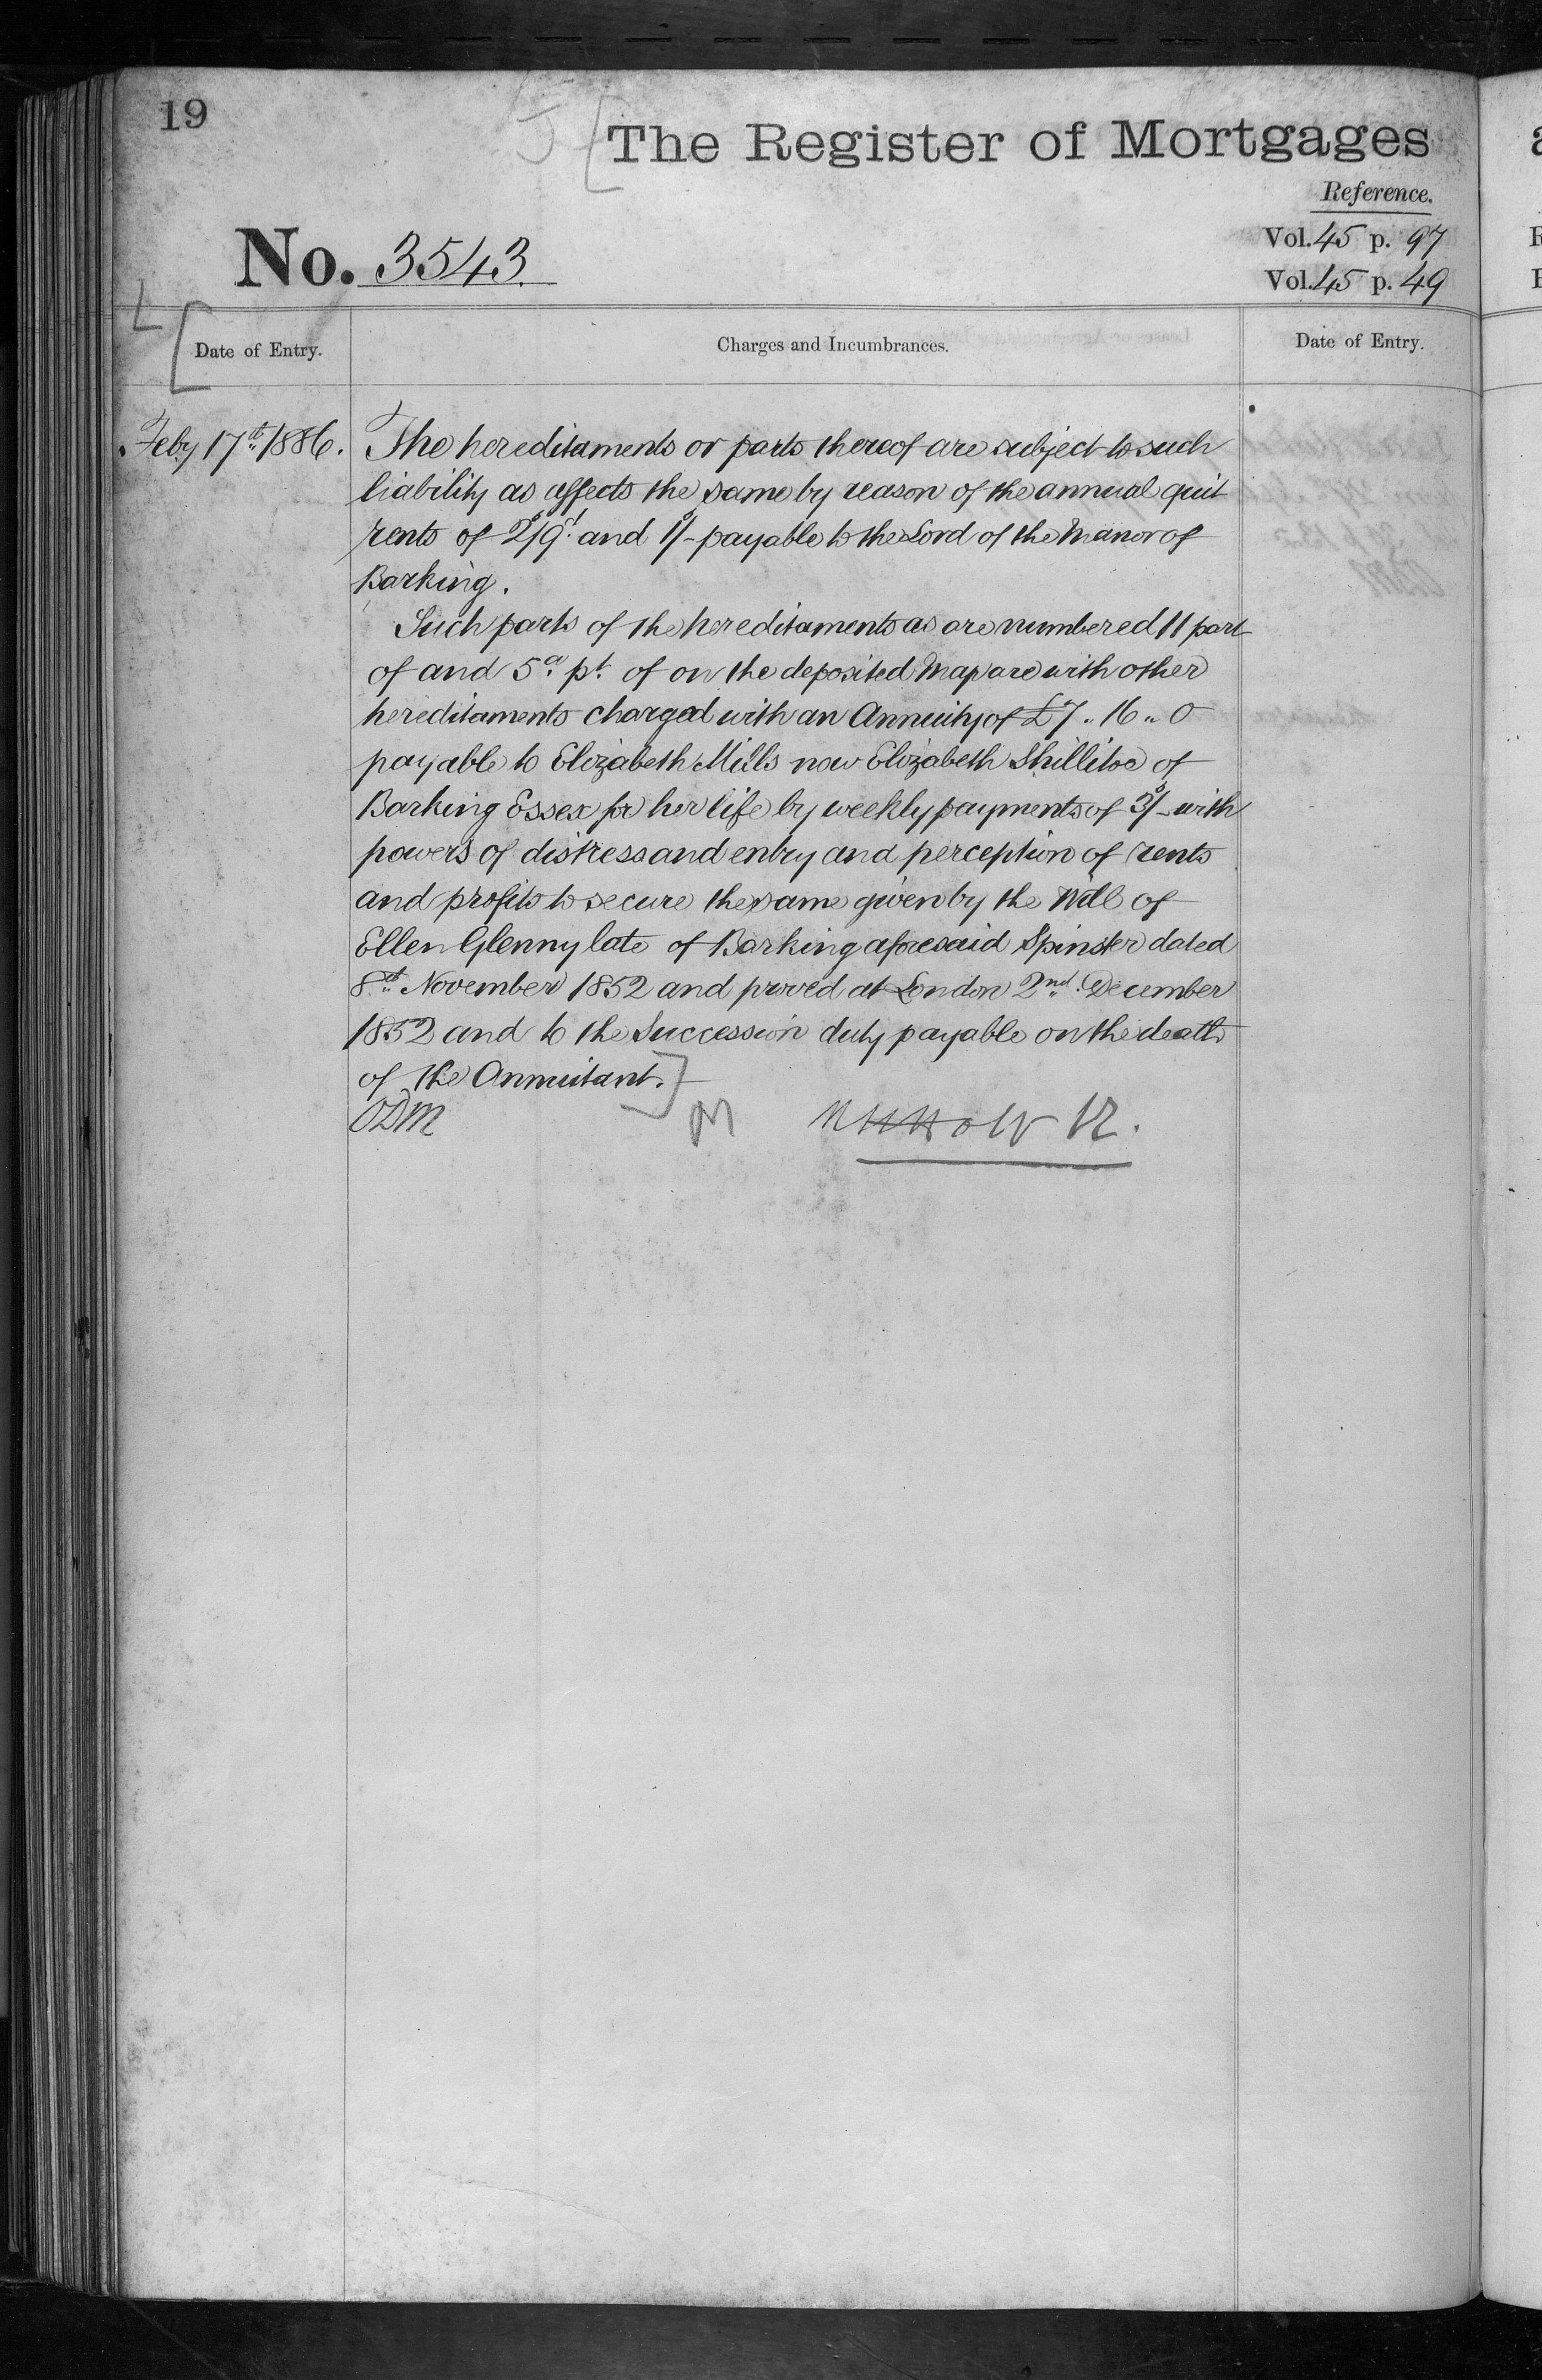 19
The Register of Mortgages
Reference.
No. 3543.
Vol. 45 p. 97
Vol. 45 p. 49
Date of Entry.
Charges and Incumbrances.
Date of Entry.
Feby 17th 1886.
The hereditaments or parts thereof are subject to such
liability as affects the same by reason of the annual quit
rents of 2s/9d. and 1s/- payable to the Lord of the Manor of
Barking.
Such parts of the hereditaments as are numbered 11 part
of and 5a. pt. of on the deposited Map are with other
hereditaments charged with an Annuity of £7 .. 16 .. 0
payable to Elizabeth Mills now Elizabeth Shillitoe of
Barking Essex for her life by weekly payments of 3s/- with
powers of distress and entry and perception of rents
and profits to secure the same given by the Will of
Ellen Glenny late of Barking aforesaid Spinster dated
8th November 1852 and proved at London 2nd December
1852 and to the Succession duty payable on the death
of the Annuitant.
ODM
M